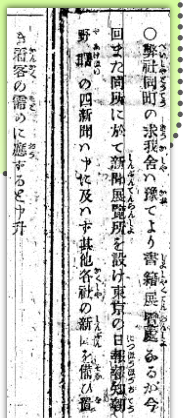 〇弊社同町の求我舎ハ豫てより書籍展覧處あるが今
回また同所に於て新聞展覧所を設け東京の日報報知朝
野曙の四新聞ハ申に及ハず其他各社の新聞を備ひ置
き看客の需めに應ずると申升